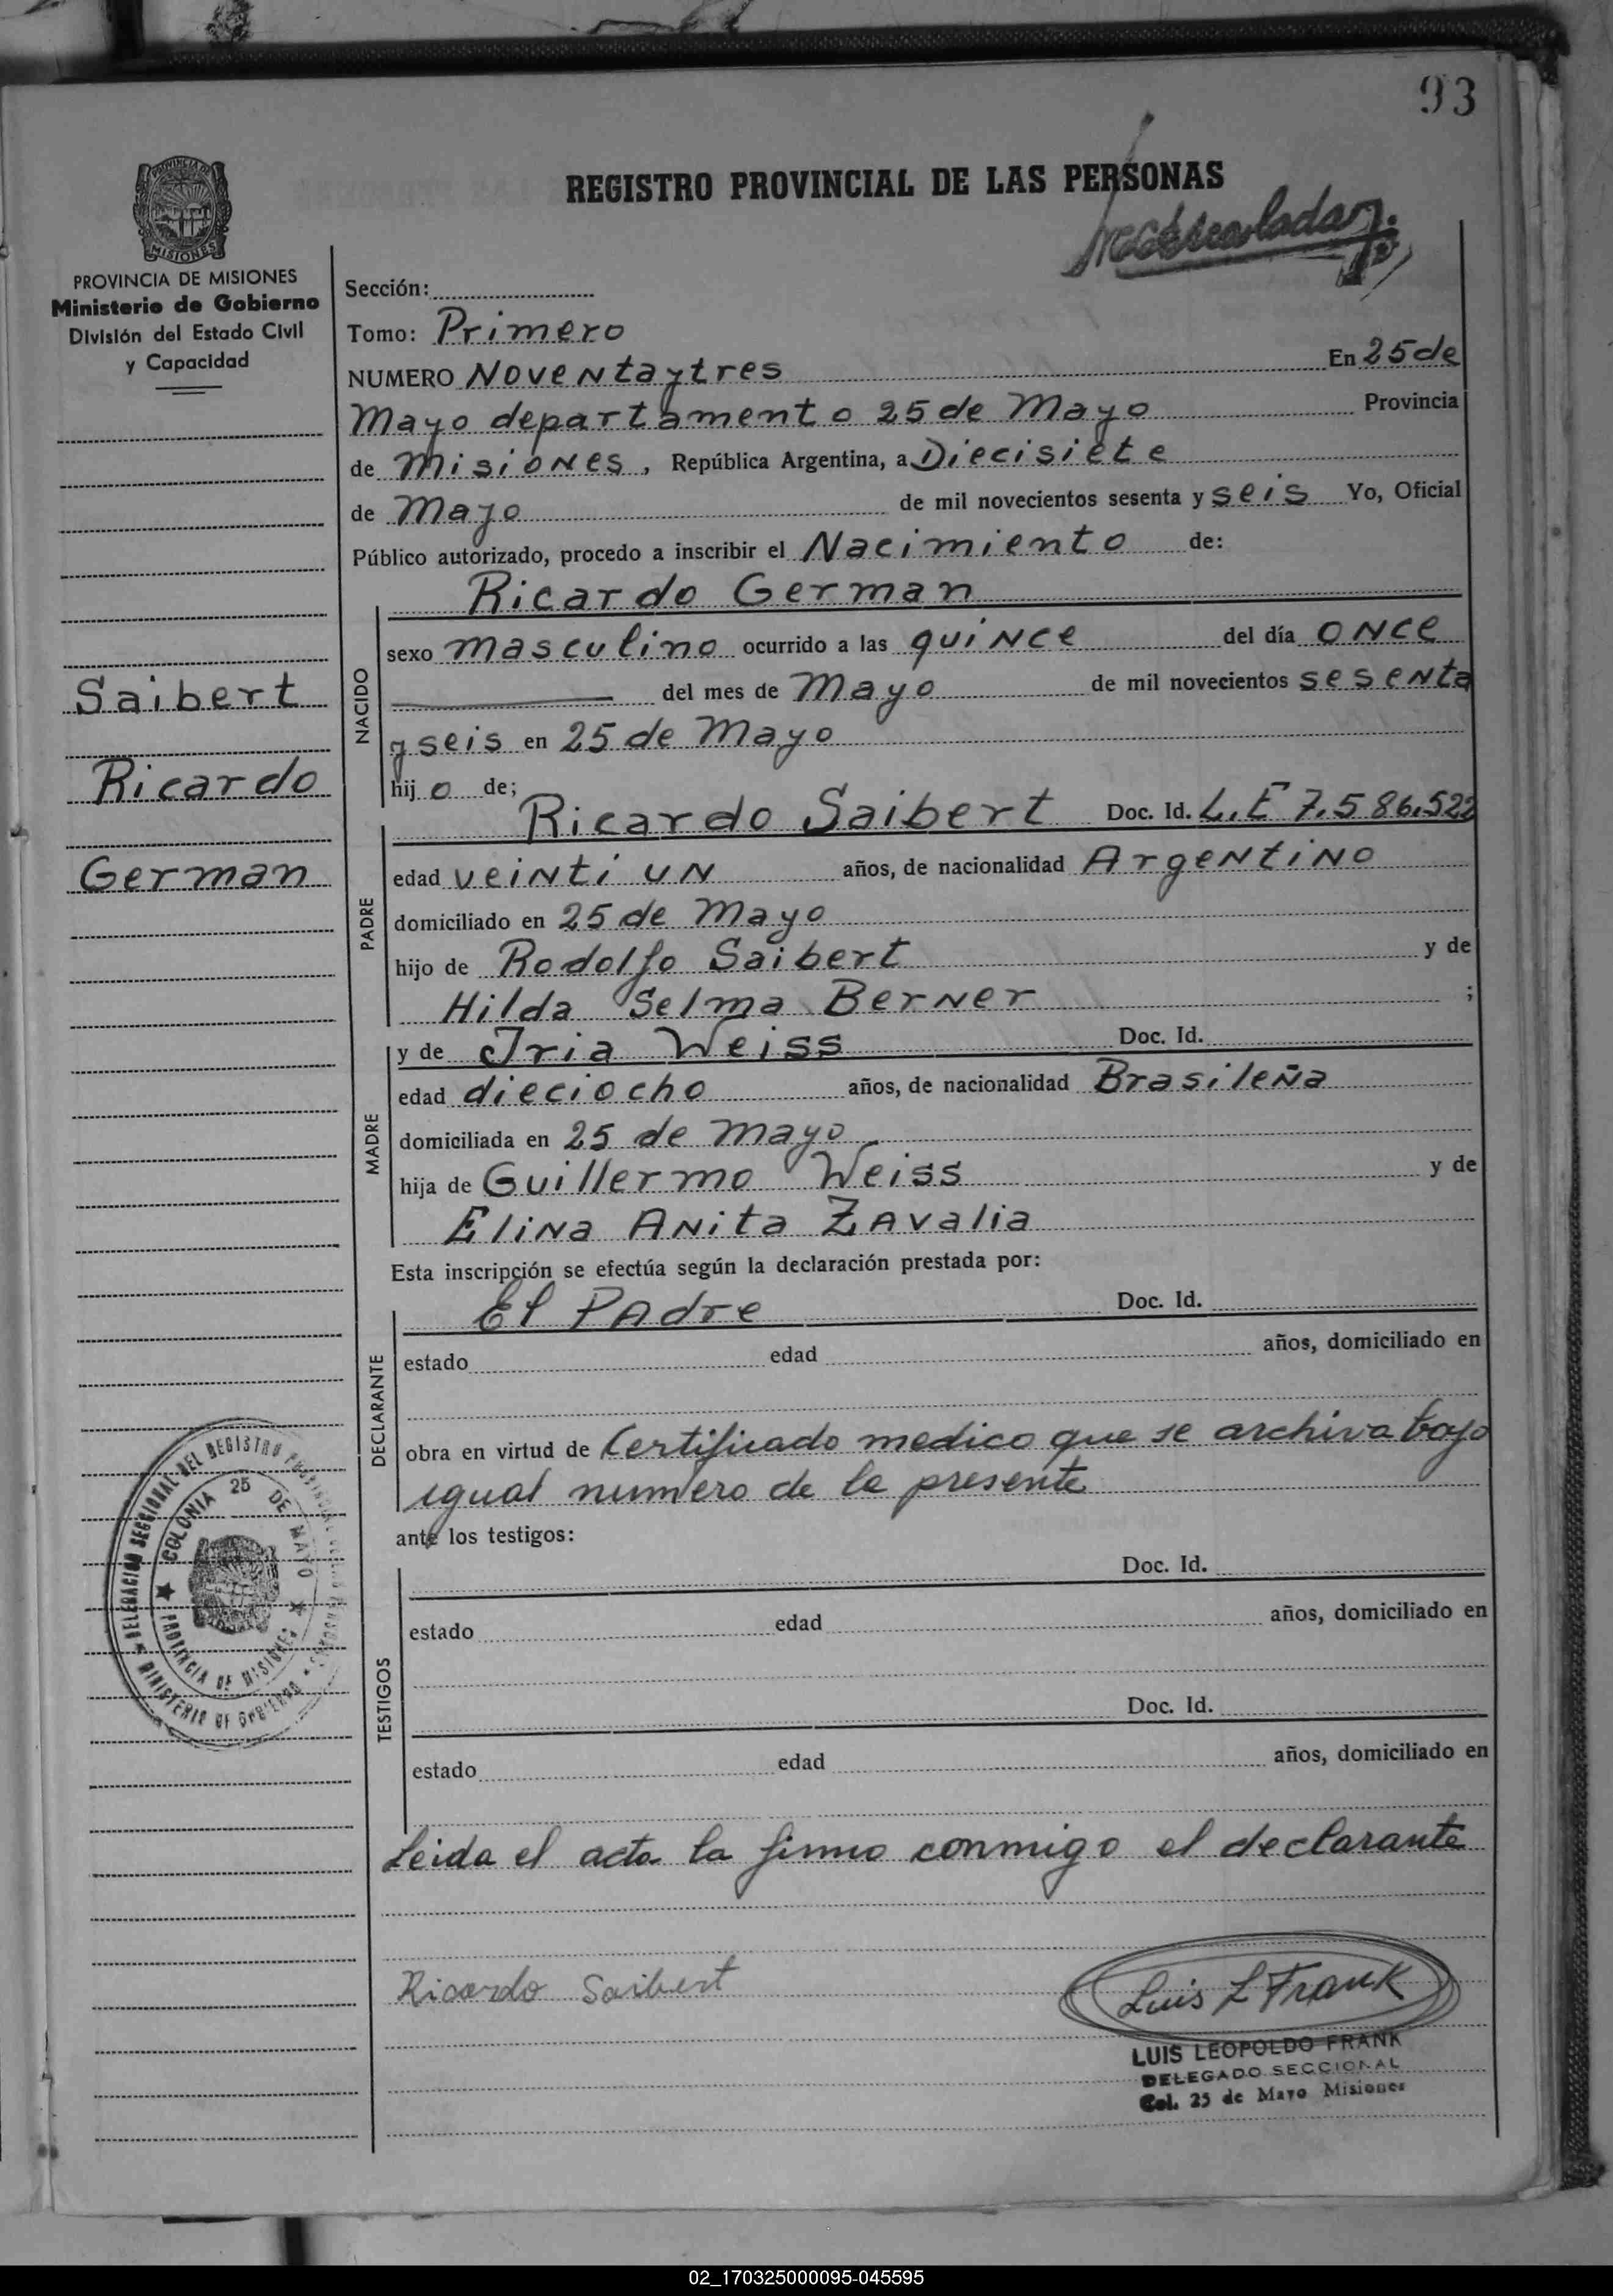 93
PROVINCIA DE MISIONES
PROVINCIA DE MISIONES
Ministerio de Gobierno
División del Estado Civil
y Capacidad
Saibert
Ricardo
German
REGISTRO PROVINCIAL DE LAS PERSONAS
Sección:
Tomo: Primero
NUMERO Noventaytres En 25 de
Mayo departamento 25 de Mayo Provincia
de Misiones, República Argentina, a Diecisiete
de Mayo de mil novecientos sesenta y seis Yo, Oficial
Público autorizado, procedo a inscribir el Nacimiento de:
Ricardo German
NACIDO
sexo masculino ocurrido a las quince del día once
del mes de Mayo de mil novecientos sesenta
y seis en 25 de Mayo
hijo de;
PADRE
Ricardo Saibert Doc. Id. L.E 7.586.522
edad veinti un años, de nacionalidad Argentino
domiciliado en 25 de Mayo
hijo de Rodolfo Saibert y de
Hilda Selma Berner ;
MADRE
y de Iria Weiss Doc. Id.
edad dieciocho años, de nacionalidad Brasileña
domiciliada en 25 de Mayo
hija de Guillermo Weiss y de
Elina Anita Zavalia
Esta inscripción se efectúa según la declaración prestada por:
DECLARANTE
El Padre Doc. Id.
estado edad años, domiciliado en
obra en virtud de Certificado medico que se archiva bajo
igual numero de la presente
ante los testigos:
TESTIGOS
Doc. Id.
estado edad años, domiciliado en
Doc. Id.
estado edad años, domiciliado en
Leida el acta la firma conmigo el declarante
Ricardo Saibert
Luis L Frank
LUIS LEOPOLDO FRANK
DELEGADO SECCIONAL
Col. 25 de Mayo Misiones
DELEGACION SECCIONAL DEL REGISTRO
MINISTERIO DE GOBIERNO
COLONIA 25 DE MAYO
PROVINCIA DE MISIONES
02_170325000095-045595